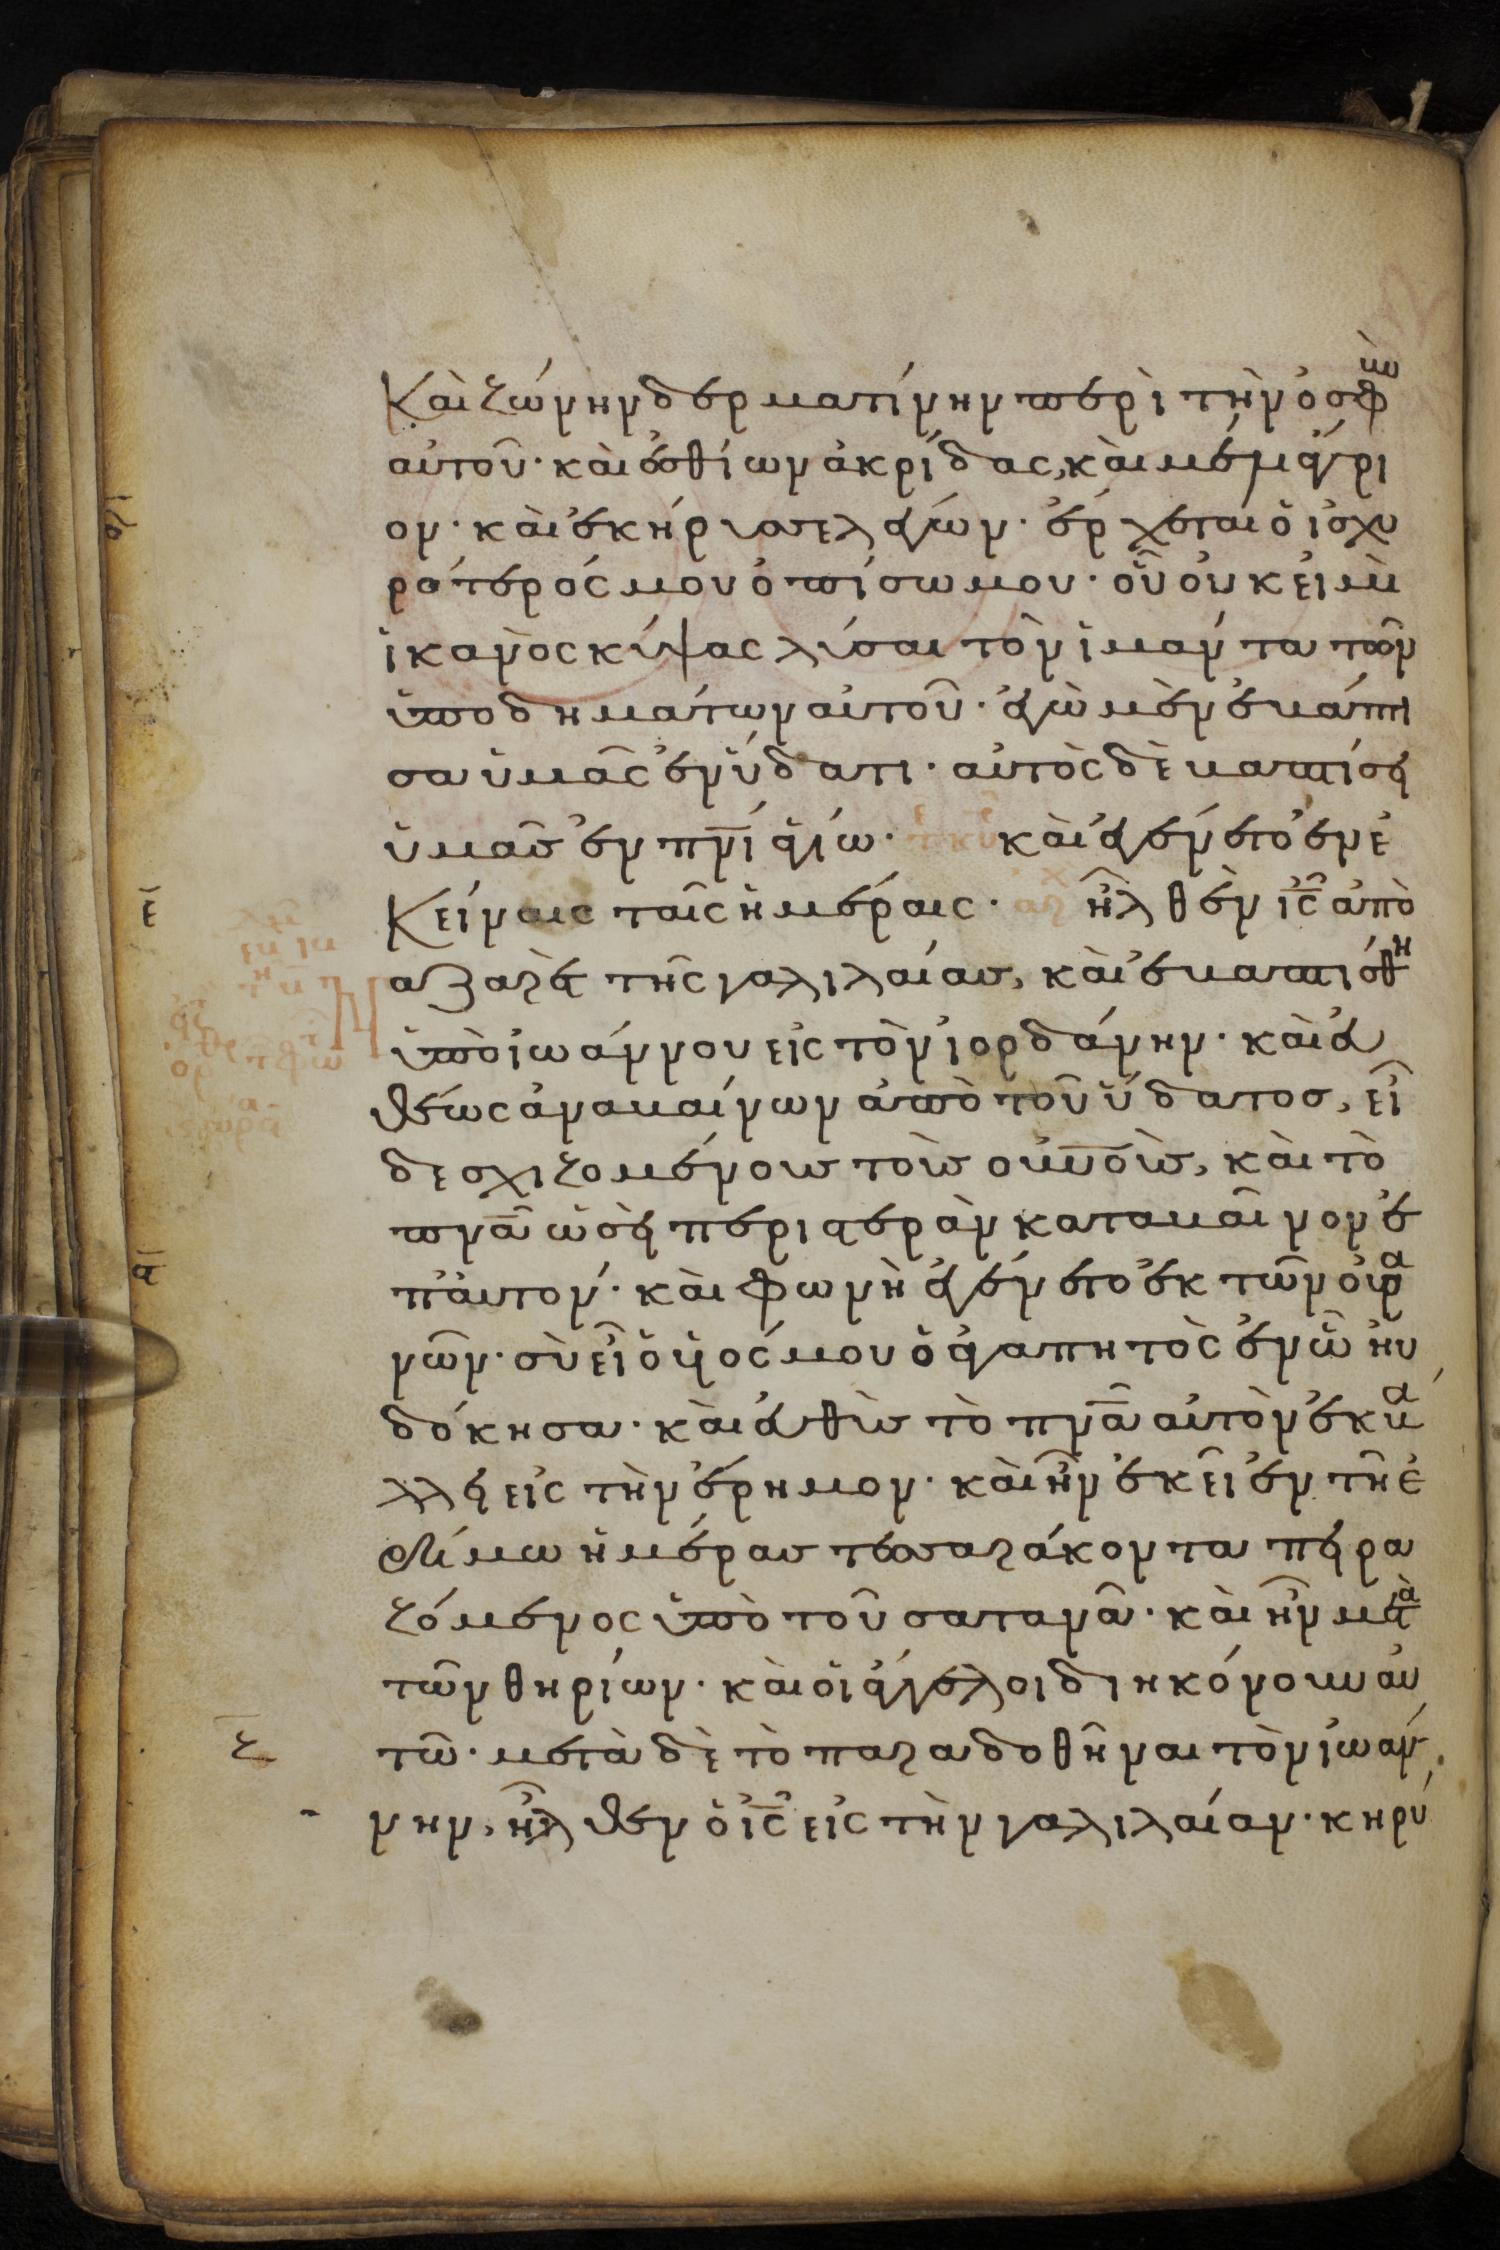 Καὶ ζώνην δερματίνην περὶ τὴν ὀσφὺν
αὐτοῦ· καὶ ἐσθίων ἀκρίδας, καὶ μέλι ἄγρι
ον· καὶ ἐκήρυσε λέγων· ἔρχεται ὁ ἰσχυ
ρότερός μου ὀπίσω μου· οὗ οὐκ εἰμὶ
ἱκανὸς κύψας λύσαι τὸν ἱμάντα τῶν
ὑποδημάτων αὐτοῦ· ἐγὼ μὲν ἐβάπτι
σα ὑμᾶς ἐν ὕδατι· αὐτὸς δὲ βαπτίσει
ὑμᾶς ἐν πνι ἁγίω· καὶ ἐγένετο ἐν ἐ
Κείναις ταῖς ἡμέραις· ἦλθεν ις ἀπὸ
ναζαρὲτ τῆς γαλιλαίας, καὶ ἐβαπτίσθη
ὑπὸ ἰωάννου εἰς τὸν ἰορδάνην· καὶ εὐ
θέως ἀναβαίνων ἀπὸ τοῦ ὕδατος, εἶ
δε σχιζομένους τοὺς οὐνοὺς, καὶ τὸ
πνᾶ ὡσεὶ περιστερὰν καταβαῖνον ἐ
π' αὐτόν· καὶ φωνὴ ἐγένετο ἐκ τῶν οὐρα
νῶν· σὺ εἶ ὁ υἱός μου ὁ ἀγαπητὸς ἐν ᾧ ηὐ
δόκησα· καὶ εὐθὺς τὸ πνᾶ αὐτὸν ἐκβά
λλει εἰς τὴν ἔρημον· καὶ ἦν ἐκεῖ ἐν τῆ ἐ
ρήμω ἡμέρας τεσσαράκοντα πειρα
ζόμενος ὑπὸ τοῦ σατανᾶ· καὶ ἦν μετὰ
τῶν θηρίων· καὶ οἱ ἄγγελοι διηκόνουν αὐ
τῶ· μετὰ δὲ τὸ παραδοθῆναι τὸν ἰωάν
νην, ἦλθεν ὁ ις εἰς τὴν γαλιλαίαν· κηρύ